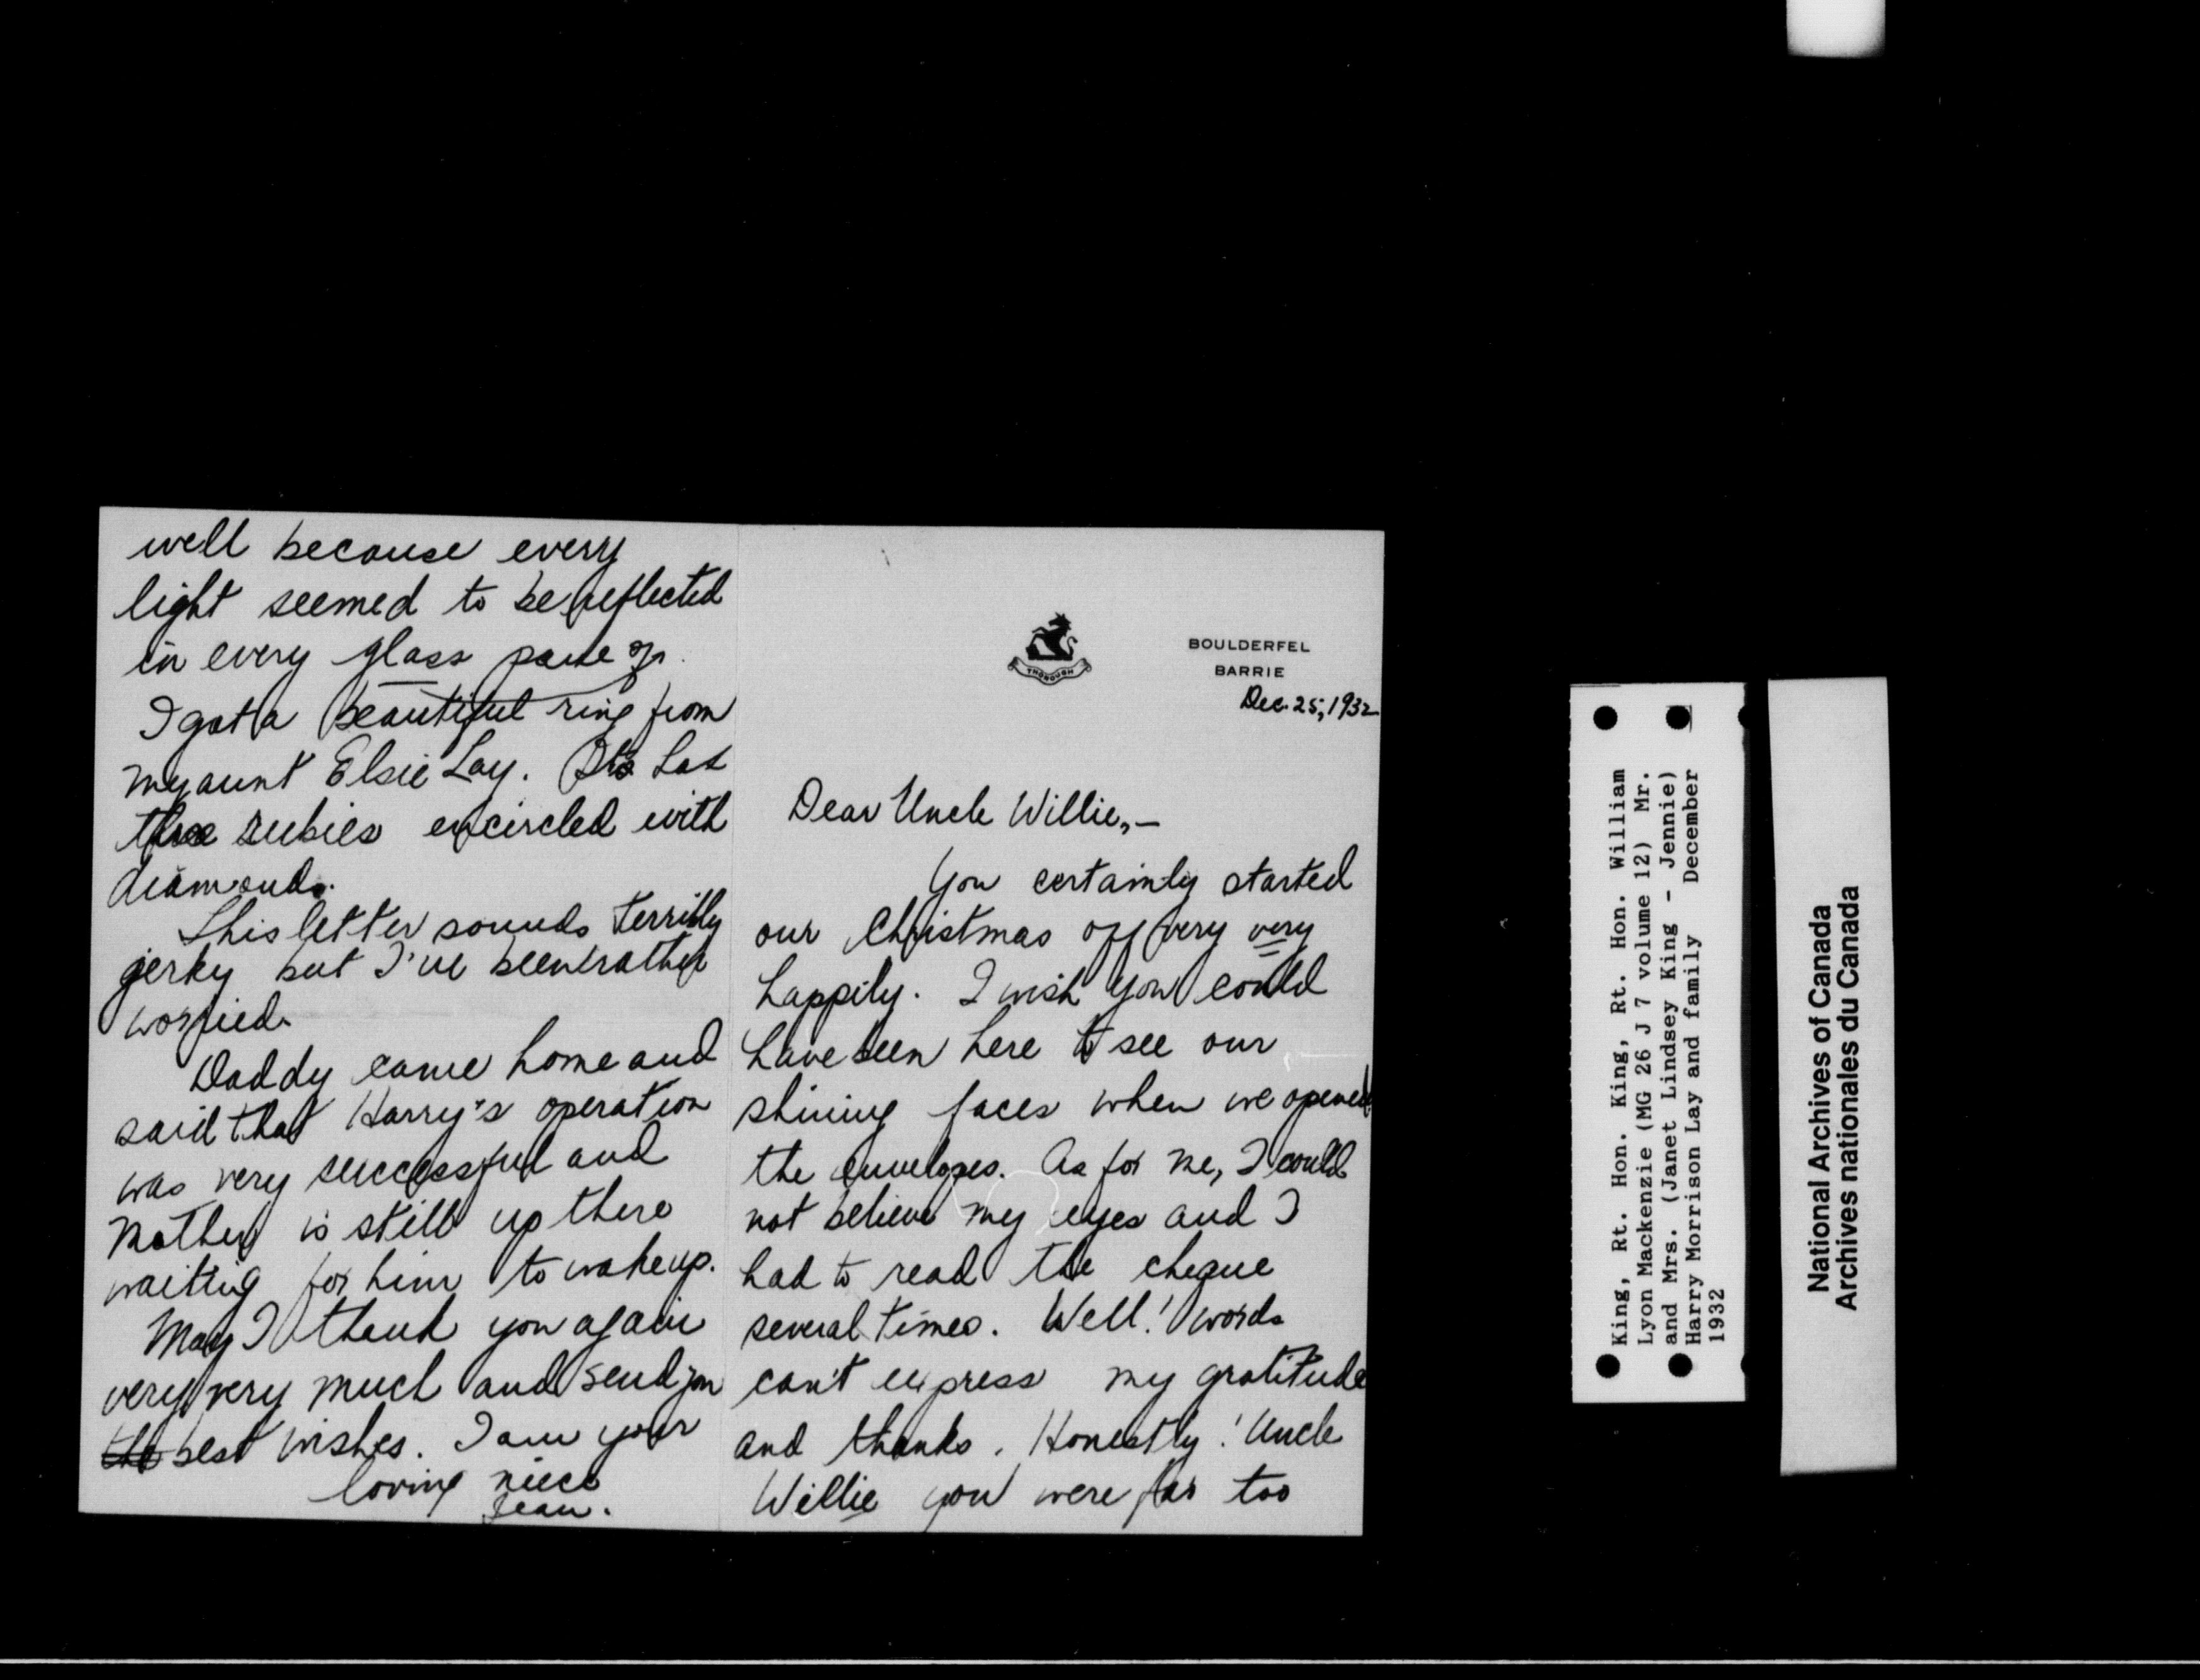 THOROUGH
BOULDERFEL
BARRIE
Dec. 25, 1932
Dear Uncle Willie,—
You certainly started
our Christmas off very very
happily. I wish you could
have been here to see our
shining faces when we opened
the envelopes. As for me, I could
not believe my eyes and I
had to read the cheque
several times. Well! words
can't express my gratitude
and thanks. Honestly! Uncle
Willie you were far too
well because every
light seemed to be reflected
in every glass pane
I got a beautiful ring from
my aunt Elsie Lay. It has
three rubies encircled with
diamonds.
This letter sounds terribly
jerky but I've been rather
worried.
Daddy came home and
said that Harry's operation
was very successful and
Mother is still up there
waiting for him to wake up.
May I thank you again
very very much and send you
the best wishes. I am your
loving niece
Jean.
King, Rt. Hon. King, Rt. Hon. William
Lyon Mackenzie (MG 26 J 7 volume 12) Mr.
and Mrs. (Janet Lindsey King - Jennie)
Harry Morrison Lay and family December
1932
National Archives of Canada
Archives nationales du Canada